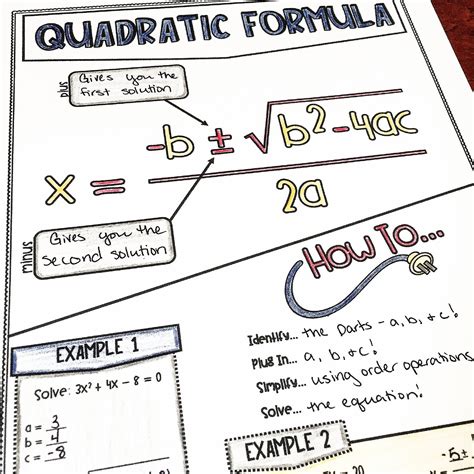 QUADRATIC FORMULA
plus
Gives you the
first solution
x = -b ± √b²-4ac
2a
minus
Gives you the
second solution
HOW TO...
Identify... the parts - a, b, & c!
Plug In... a, b, & c!
Simplify... using order operations
Solve... the equation!
EXAMPLE 1
Solve: 3x² + 4x - 8 = 0
a = 3
b = 4
c = -8
EXAMPLE 2